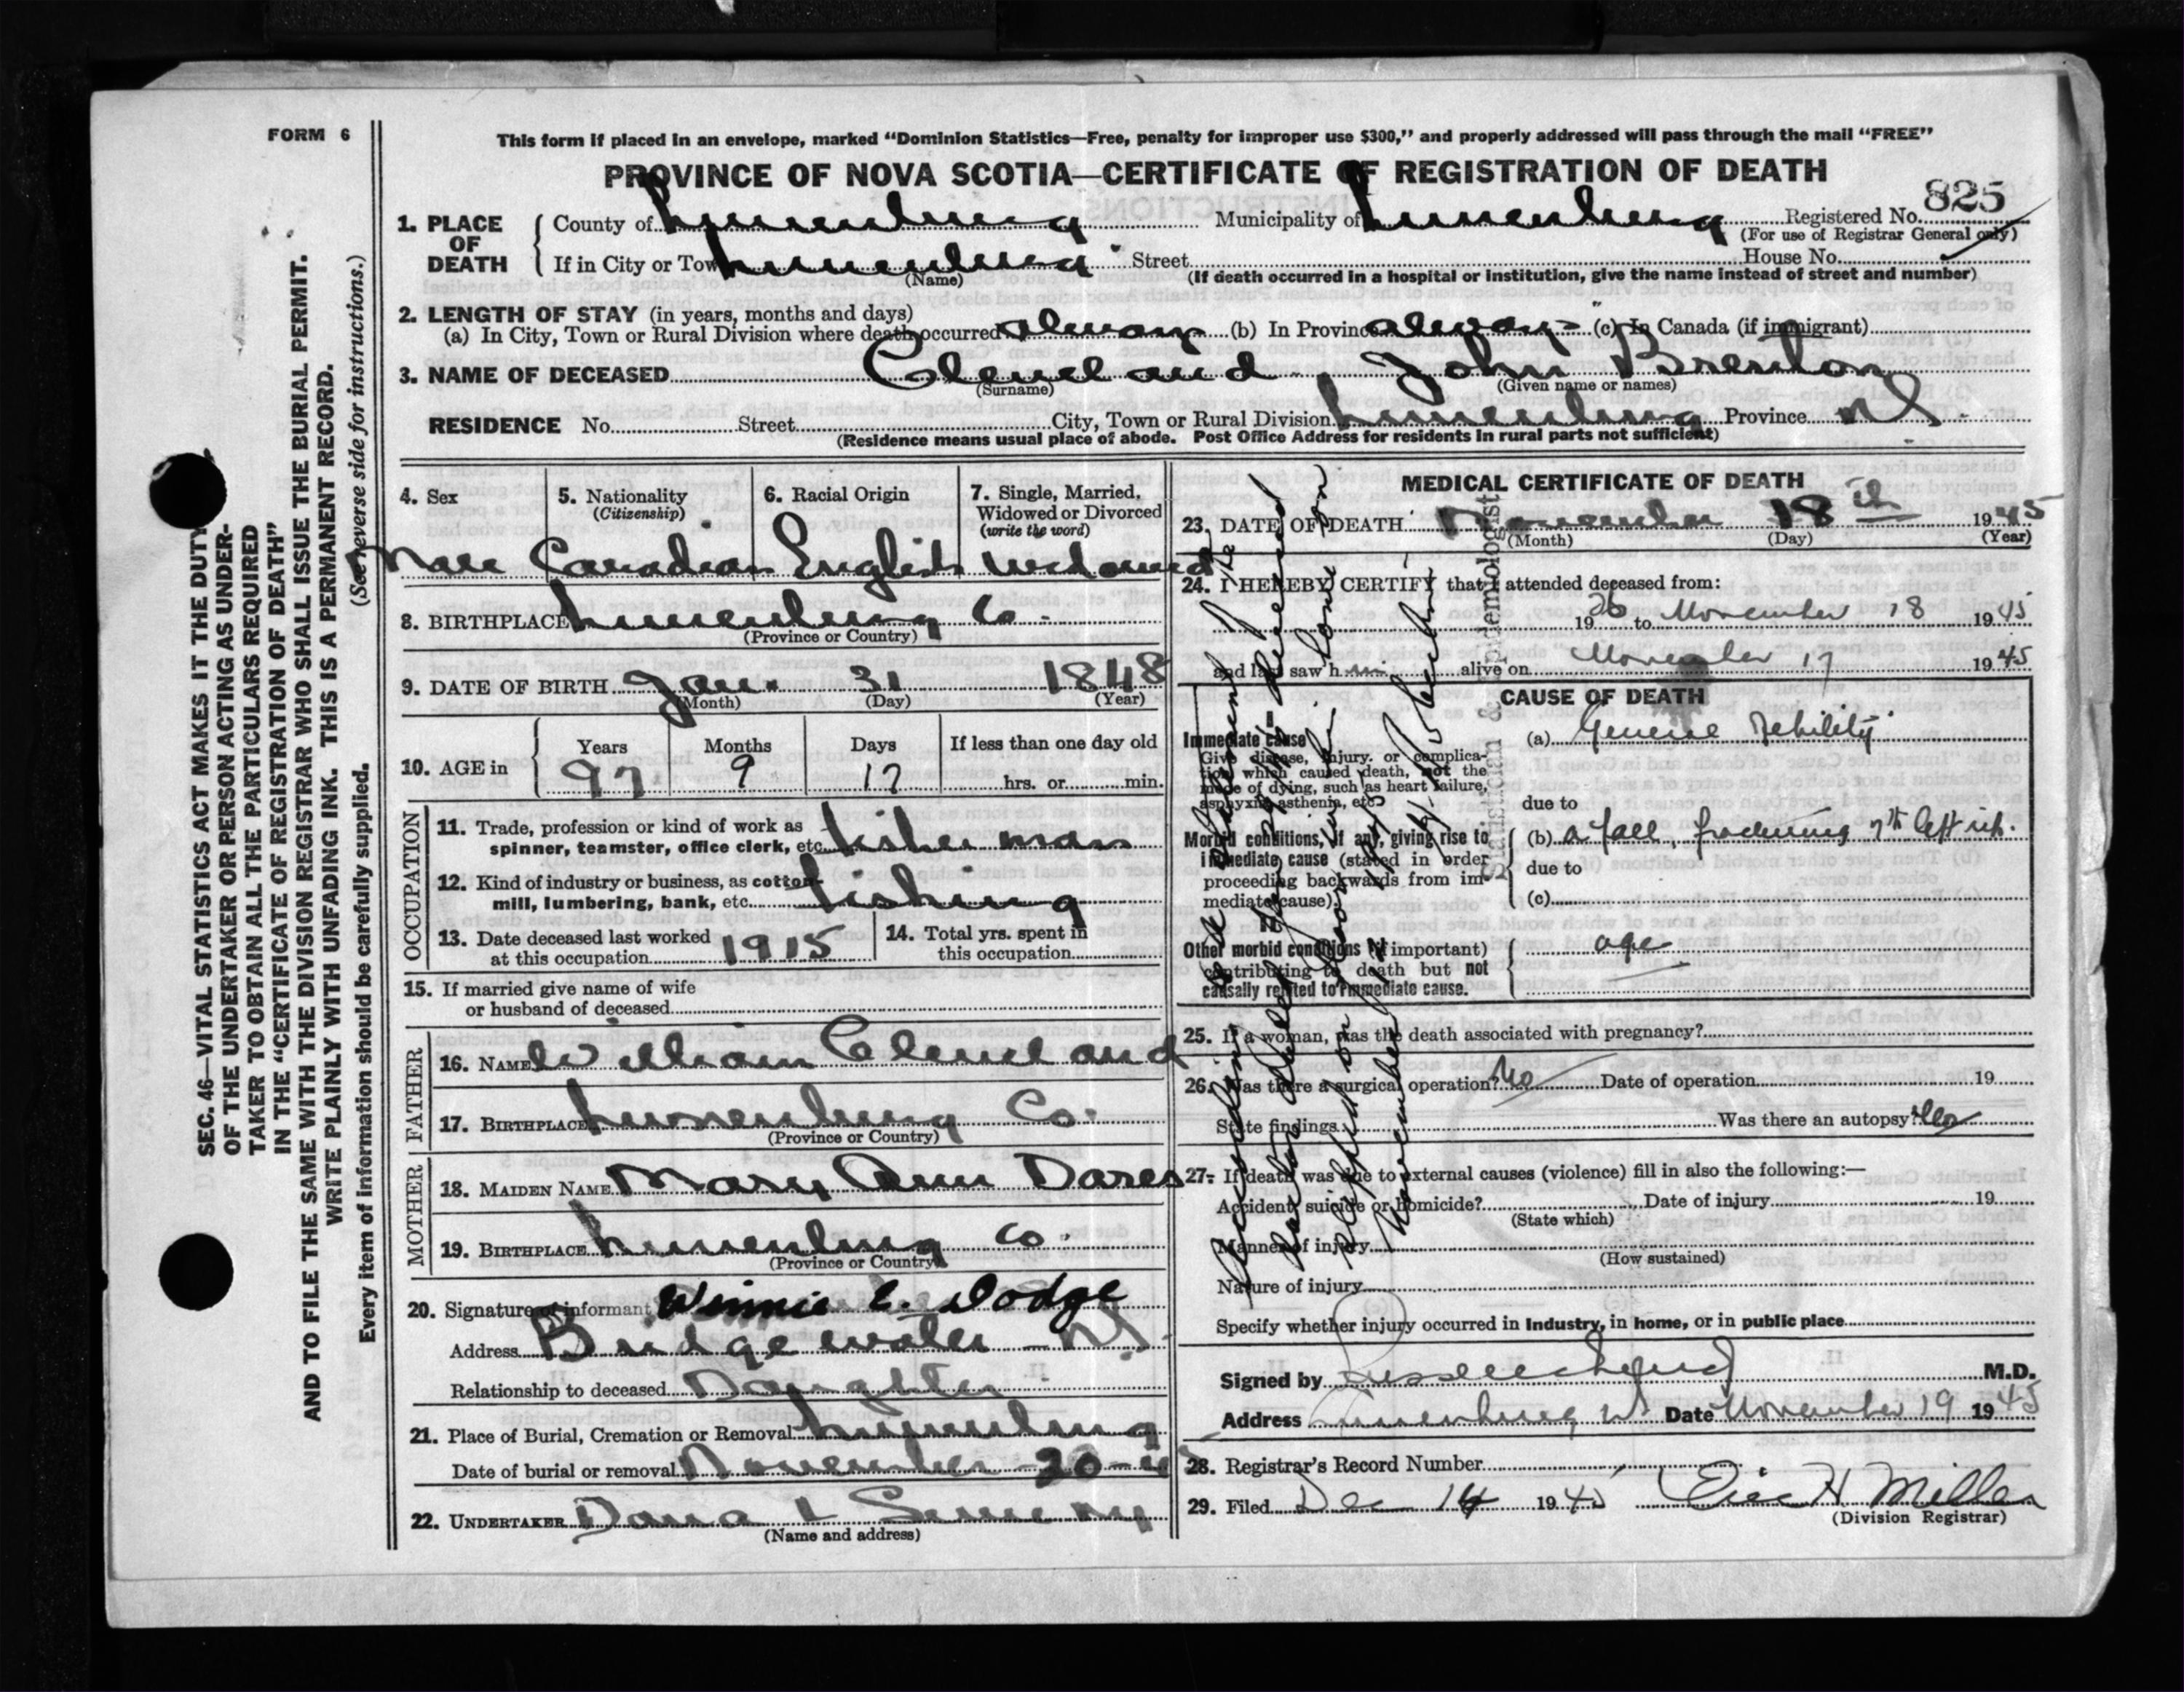 FORM 6
This form if placed in an envelope, marked “Dominion Statistics—Free, penalty for improper use $300,” and properly addressed will pass through the mail “FREE”
PROVINCE OF NOVA SCOTIA—CERTIFICATE OF REGISTRATION OF DEATH
825
1. PLACE OF DEATH
County of Lunenburg Municipality of Lunenburg Registered No.
(For use of Registrar General only)
If in City or Town Lunenburg Street House No.
(Name) (If death occurred in a hospital or institution, give the name instead of street and number)
2. LENGTH OF STAY (in years, months and days)
(a) In City, Town or Rural Division where death occurred always (b) In Province always (c) In Canada (if immigrant)
3. NAME OF DECEASED Cleveland, John Brenton
(Surname) (Given name or names)
RESIDENCE No. Street City, Town or Rural Division Lunenburg Province NS
(Residence means usual place of abode. Post Office Address for residents in rural parts not sufficient)
4. Sex 5. Nationality (Citizenship) 6. Racial Origin 7. Single, Married, Widowed or Divorced (write the word)
Male Canadian English widowed
8. BIRTHPLACE Lunenburg Co.
(Province or Country)
9. DATE OF BIRTH Jan. 31 1848
(Month) (Day) (Year)
10. AGE in Years Months Days If less than one day old
97 9 17 hrs. or min.
OCCUPATION
11. Trade, profession or kind of work as spinner, teamster, office clerk, etc. fisherman
12. Kind of industry or business, as cotton-mill, lumbering, bank, etc. fishing
13. Date deceased last worked at this occupation 1915
14. Total yrs. spent in this occupation
15. If married give name of wife
or husband of deceased
FATHER
16. NAME William Cleveland
17. BIRTHPLACE Lunenburg Co.
(Province or Country)
MOTHER
18. MAIDEN NAME Mary Ann Dares
19. BIRTHPLACE Lunenburg Co.
(Province or Country)
20. Signature of informant Winnie C. Dodge
Address Bridgewater NS.
Relationship to deceased Daughter
21. Place of Burial, Cremation or Removal Lunenburg
Date of burial or removal November 20-45
22. UNDERTAKER Dana L Sweeny
(Name and address)
MEDICAL CERTIFICATE OF DEATH
23. DATE OF DEATH November 18th 1945
(Month) (Day) (Year)
24. I HEREBY CERTIFY that I attended deceased from:
1926 to November 18 1945
and last saw him alive on November 17 1945
CAUSE OF DEATH
I
Immediate cause
Give disease, injury, or complication which caused death, not the mode of dying, such as heart failure, asphyxia, asthenia, etc.
(a) General debility
due to
Morbid conditions, if any, giving rise to immediate cause (stated in order proceeding backwards from immediate cause).
(b) a fall, fracturing 7th left rib.
due to
(c)
II
Other morbid conditions (if important) contributing to death but not causally related to immediate cause.
age
25. If a woman, was the death associated with pregnancy?
26. Was there a surgical operation? No Date of operation 19
State findings Was there an autopsy? No
27. If death was due to external causes (violence) fill in also the following:—
Accident, suicide or homicide? Date of injury 19
(State which)
Manner of injury
(How sustained)
Nature of injury
Specify whether injury occurred in Industry, in home, or in public place
Signed by M.D.
Address Lunenburg NS Date November 19 1945
28. Registrar's Record Number
29. Filed Dec 14 1945 Eric H Miller
(Division Registrar)
Statistician & Epidemologist
SEC. 46—VITAL STATISTICS ACT MAKES IT THE DUTY
OF THE UNDERTAKER OR PERSON ACTING AS UNDER-
TAKER TO OBTAIN ALL THE PARTICULARS REQUIRED
IN THE “CERTIFICATE OF REGISTRATION OF DEATH”
AND TO FILE THE SAME WITH THE DIVISION REGISTRAR WHO SHALL ISSUE THE BURIAL PERMIT.
WRITE PLAINLY WITH UNFADING INK. THIS IS A PERMANENT RECORD.
Every item of information should be carefully supplied. (See reverse side for instructions.)